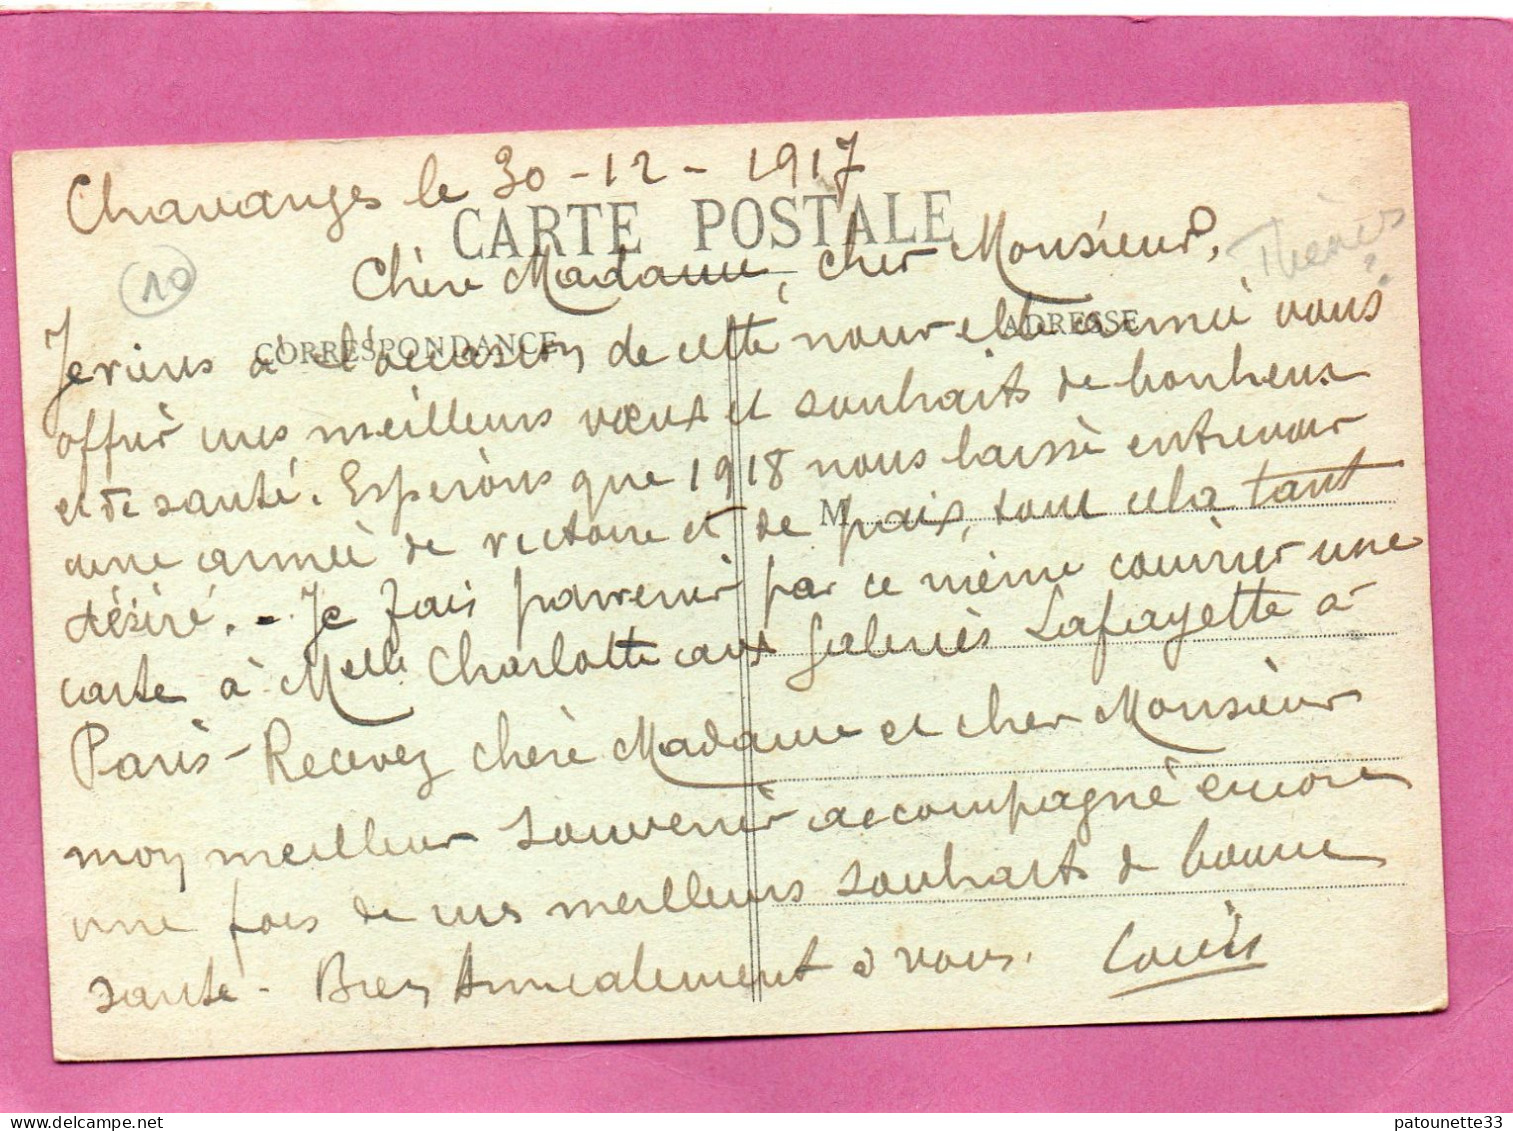 Chavanges le 30-12-1917
CARTE POSTALE
10
Chère Madame, cher Monsieur,
CORRESPONDANCE
ADRESSE
Je viens à l'occasion de cette nouvelle année vous
offrir mes meilleurs vœux et souhaits de bonheur
et de santé. Espérons que 1918 nous laisse entrevoir
une année de victoire et de paix, tout cela tant
M
désiré. - Je fais parvenir par ce même courrier une
carte à Melle Charlotte aux Galeries Lafayette à
Paris - Recevez chère Madame et cher Monsieur
mon meilleur souvenir accompagné encore
une fois de mes meilleurs souhaits de bonne
santé - Bien Amicalement à vous. Louis
patounette33